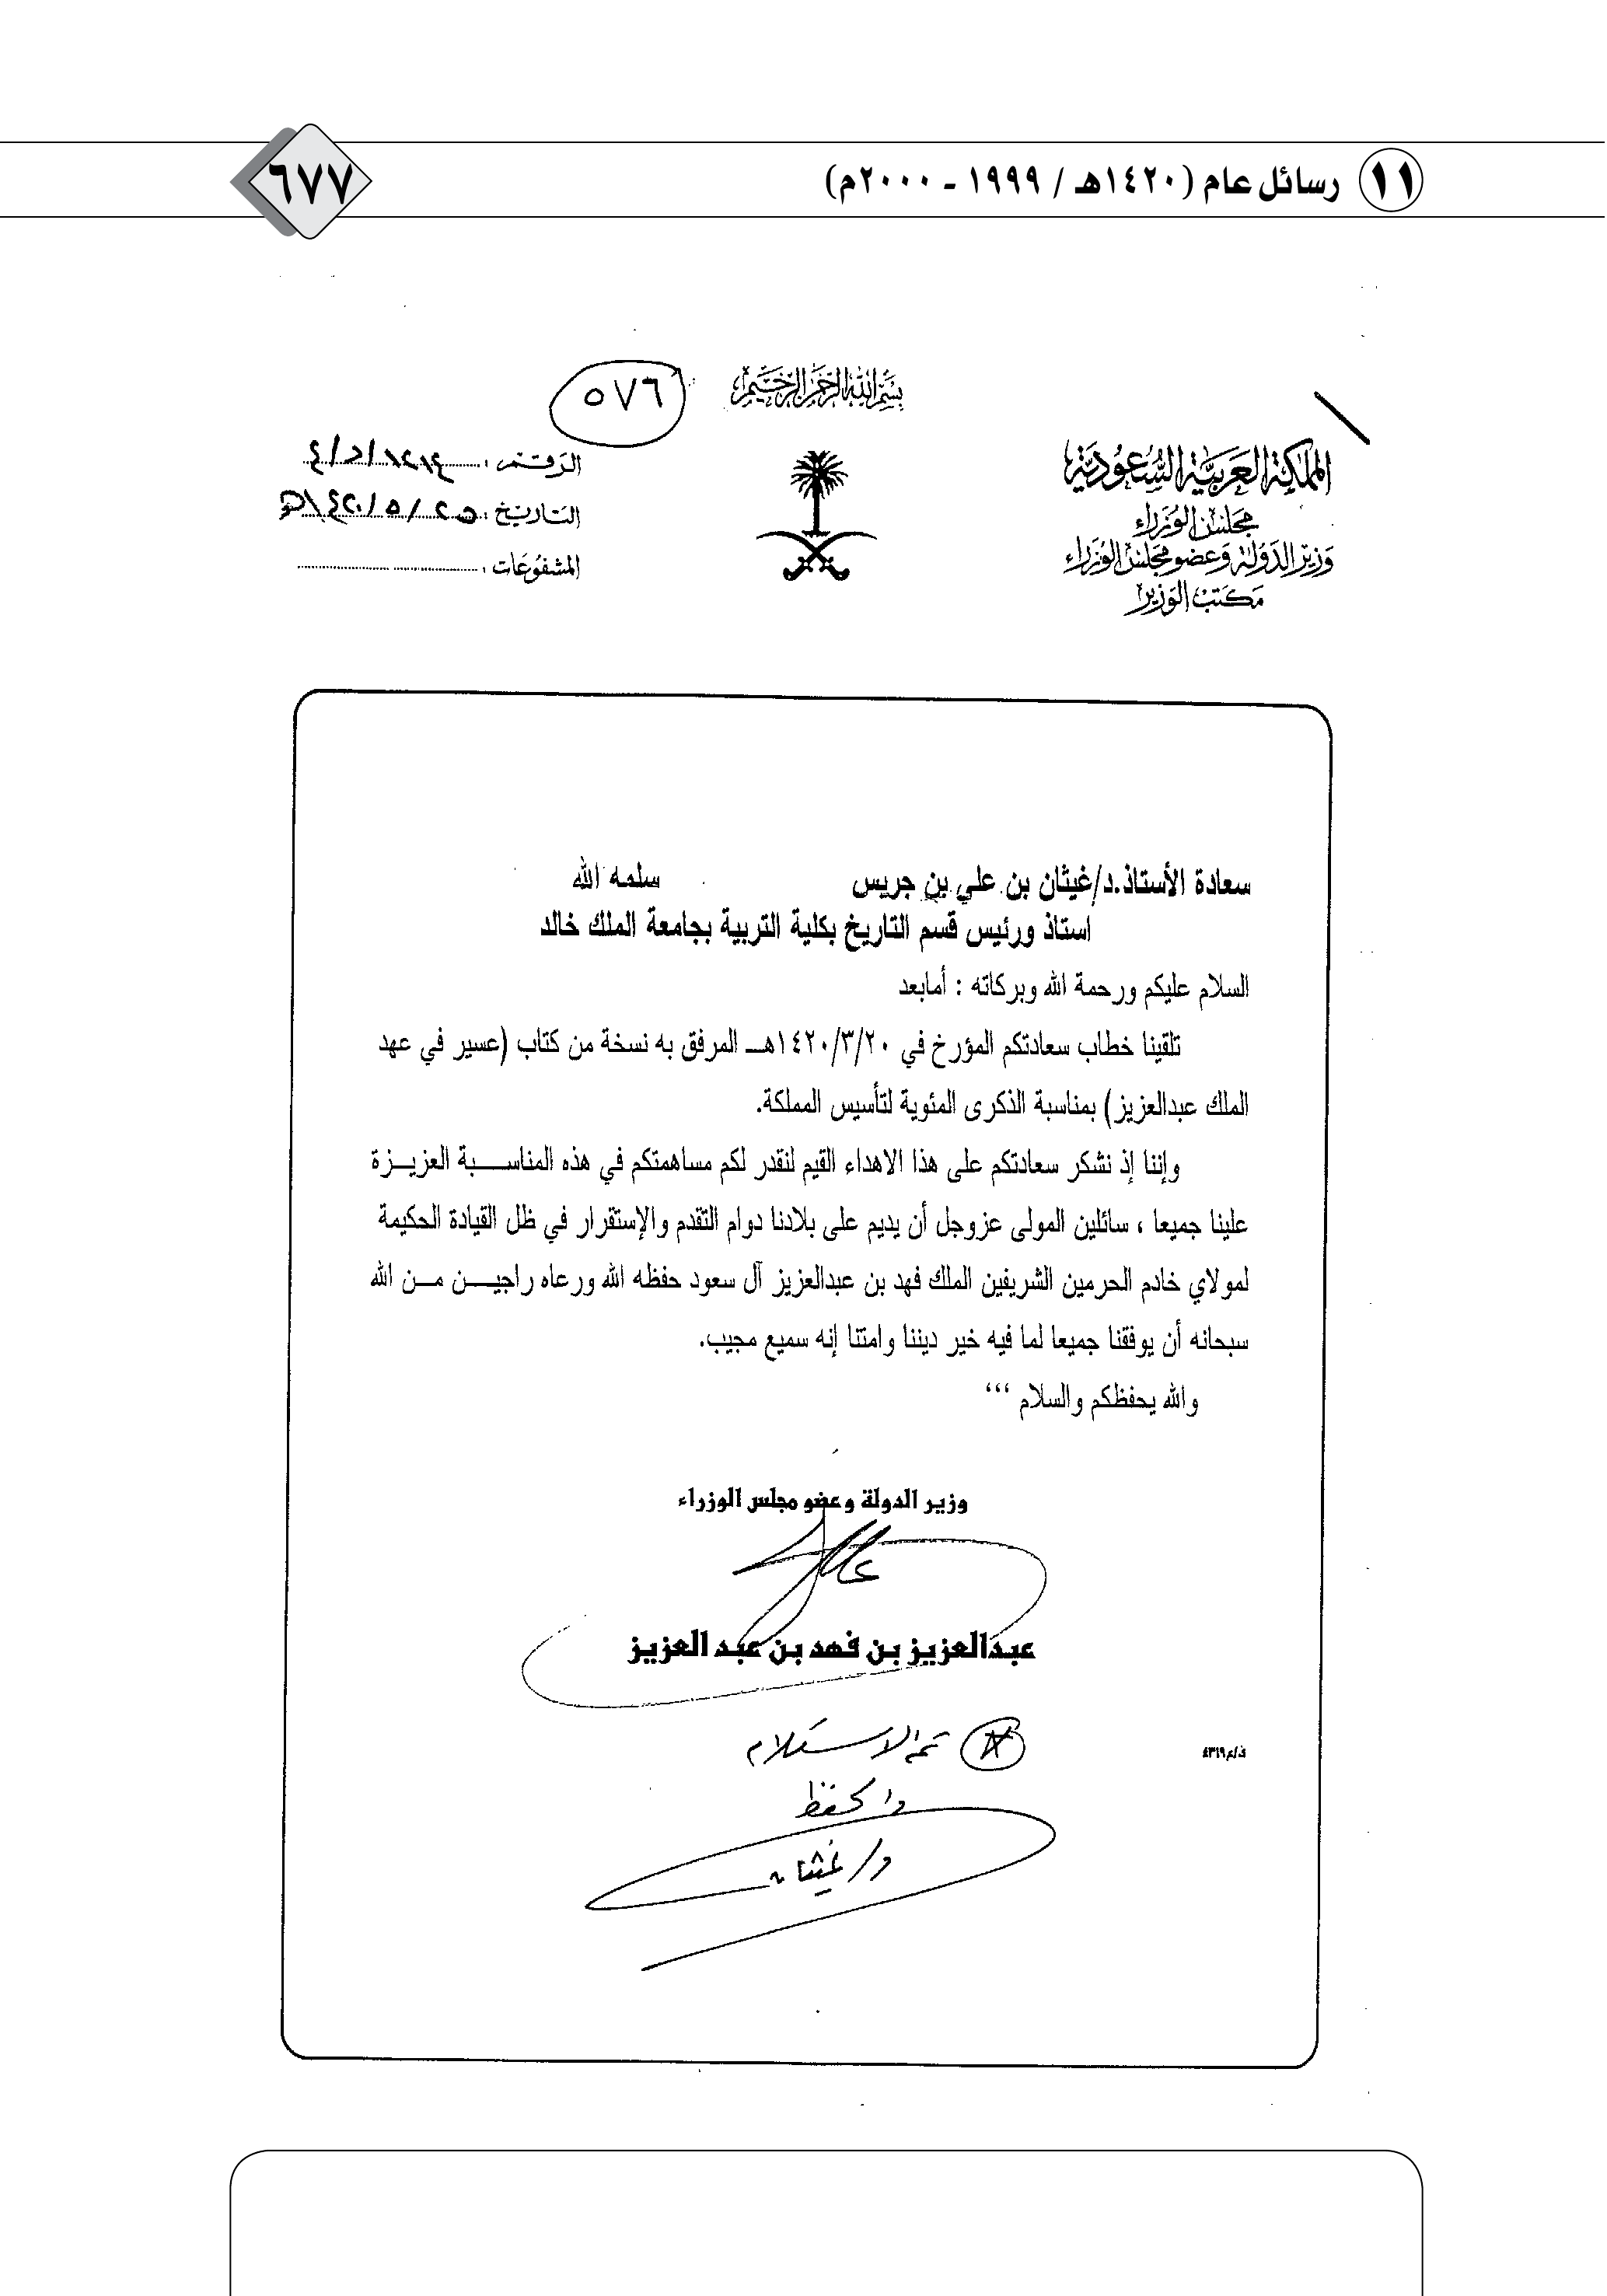 ١١ رسائل عام (١٤٢٠هـ / ١٩٩٩ - ٢٠٠٠م)
٦٧٧
بسم الله الرحمن الرحيم
٥٧٦
المملكة العربية السعودية
مجلس الوزراء
وزير الدولة وعضو مجلس الوزراء
مكتب الوزير
الرقم :
التاريخ :
المشفوعات :
سعادة الأستاذ.د/غيثان بن علي بن جريس سلمه الله
استاذ ورئيس قسم التاريخ بكلية التربية بجامعة الملك خالد
السلام عليكم ورحمة الله وبركاته : أمابعد
تلقينا خطاب سعادتكم المؤرخ في ١٤٢٠/٣/٢٠هـ المرفق به نسخة من كتاب (عسير في عهد
الملك عبدالعزيز) بمناسبة الذكرى المئوية لتأسيس المملكة.
وإننا إذ نشكر سعادتكم على هذا الاهداء القيم لنقدر لكم مساهمتكم في هذه المناسبة العزيزة
علينا جميعا ، سائلين المولى عزوجل أن يديم على بلادنا دوام التقدم والإستقرار في ظل القيادة الحكيمة
لمولاي خادم الحرمين الشريفين الملك فهد بن عبدالعزيز آل سعود حفظه الله ورعاه راجين من الله
سبحانه أن يوفقنا جميعا لما فيه خير ديننا وامتنا إنه سميع مجيب.
والله يحفظكم والسلام ،،،
وزير الدولة وعضو مجلس الوزراء
عبدالعزيز بن فهد بن عبد العزيز
تم الاستلام
والحفظ
د/ غيثان